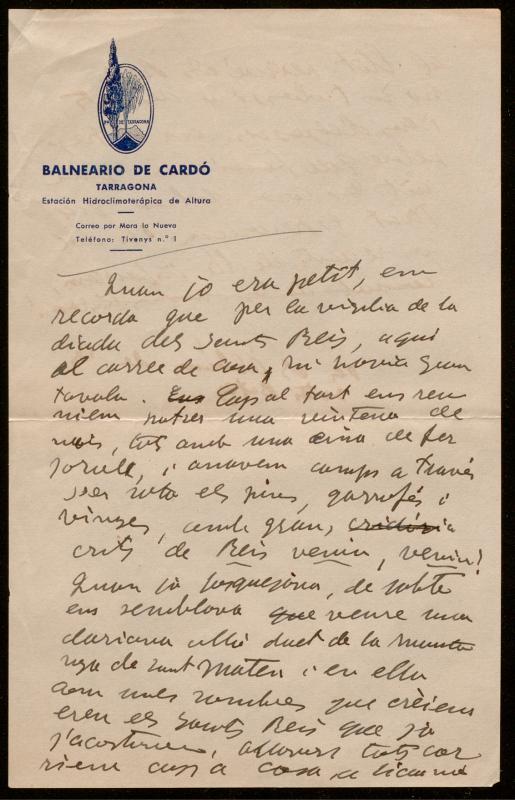 DE TARRAGONA
BALNEARIO DE CARDÓ
TARRAGONA
Estación Hidroclimoterápica de Altura
Correo por Mora la Nueva
Teléfono: Tivenys n.º 1
Quan jo era petit, em
recorda que per la vigilia de la
diada dels Sants Reis, aqui
al carrer de casa, hi havia gran
tavola. Cap al tart ens reu
niem una vintena de
nois, tots amb una de fer
soroll, i anavem camps a través
per sota els pins, garrofés i
vinyes, amb grans cridória
crits de Reis venin, venin!
Quan ja fosquejava, de sobte
ens semblava que veure una
clariana allá dalt de la munta
nya de Sant Mateu i en ella
com unes sombres que crèiem
eren els Sants Reis que ja
s'acostaven, allavors tots cor
riem cap a casa a